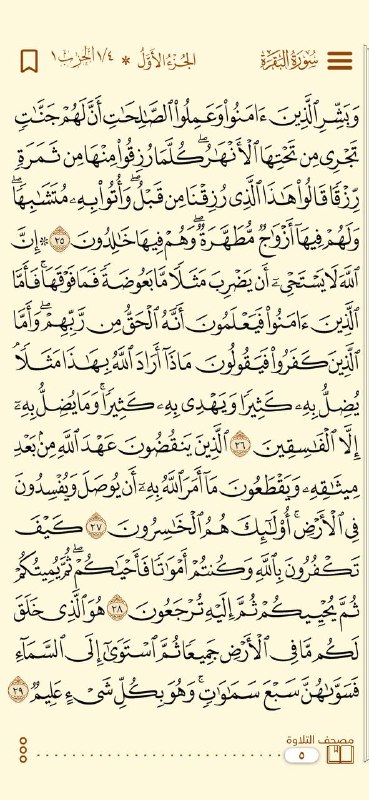 سُورَةُ البَقَرَةِ الجُزْءُ الأَوَّلُ * ١/٤ الحِزْبُ ١
وَبَشِّرِ ٱلَّذِينَ ءَامَنُوا۟ وَعَمِلُوا۟ ٱلصَّٰلِحَٰتِ أَنَّ لَهُمْ جَنَّٰتٍ
تَجْرِى مِن تَحْتِهَا ٱلْأَنْهَٰرُ ۖ كُلَّمَا رُزِقُوا۟ مِنْهَا مِن ثَمَرَةٍ
رِّزْقًا قَالُوا۟ هَٰذَا ٱلَّذِى رُزِقْنَا مِن قَبْلُ ۖ وَأُتُوا۟ بِهِۦ مُتَشَٰبِهًا ۖ
وَلَهُمْ فِيهَآ أَزْوَٰجٌ مُّطَهَّرَةٌ ۖ وَهُمْ فِيهَا خَٰلِدُونَ ٢٥ ۞ إِنَّ
ٱللَّهَ لَا يَسْتَحْىِۦٓ أَن يَضْرِبَ مَثَلًا مَّا بَعُوضَةً فَمَا فَوْقَهَا ۚ فَأَمَّا
ٱلَّذِينَ ءَامَنُوا۟ فَيَعْلَمُونَ أَنَّهُ ٱلْحَقُّ مِن رَّبِّهِمْ ۖ وَأَمَّا
ٱلَّذِينَ كَفَرُوا۟ فَيَقُولُونَ مَاذَآ أَرَادَ ٱللَّهُ بِهَٰذَا مَثَلًا ۘ
يُضِلُّ بِهِۦ كَثِيرًا وَيَهْدِى بِهِۦ كَثِيرًا ۚ وَمَا يُضِلُّ بِهِۦٓ
إِلَّا ٱلْفَٰسِقِينَ ٢٦ ٱلَّذِينَ يَنقُضُونَ عَهْدَ ٱللَّهِ مِنۢ بَعْدِ
مِيثَٰقِهِۦ وَيَقْطَعُونَ مَآ أَمَرَ ٱللَّهُ بِهِۦٓ أَن يُوصَلَ وَيُفْسِدُونَ
فِى ٱلْأَرْضِ ۚ أُو۟لَٰٓئِكَ هُمُ ٱلْخَٰسِرُونَ ٢٧ كَيْفَ
تَكْفُرُونَ بِٱللَّهِ وَكُنتُمْ أَمْوَٰتًا فَأَحْيَٰكُمْ ۖ ثُمَّ يُمِيتُكُمْ
ثُمَّ يُحْيِيكُمْ ثُمَّ إِلَيْهِ تُرْجَعُونَ ٢٨ هُوَ ٱلَّذِى خَلَقَ
لَكُم مَّا فِى ٱلْأَرْضِ جَمِيعًا ثُمَّ ٱسْتَوَىٰٓ إِلَى ٱلسَّمَآءِ
فَسَوَّىٰهُنَّ سَبْعَ سَمَٰوَٰتٍ ۚ وَهُوَ بِكُلِّ شَىْءٍ عَلِيمٌ ٢٩
مصحف التلاوة
٥